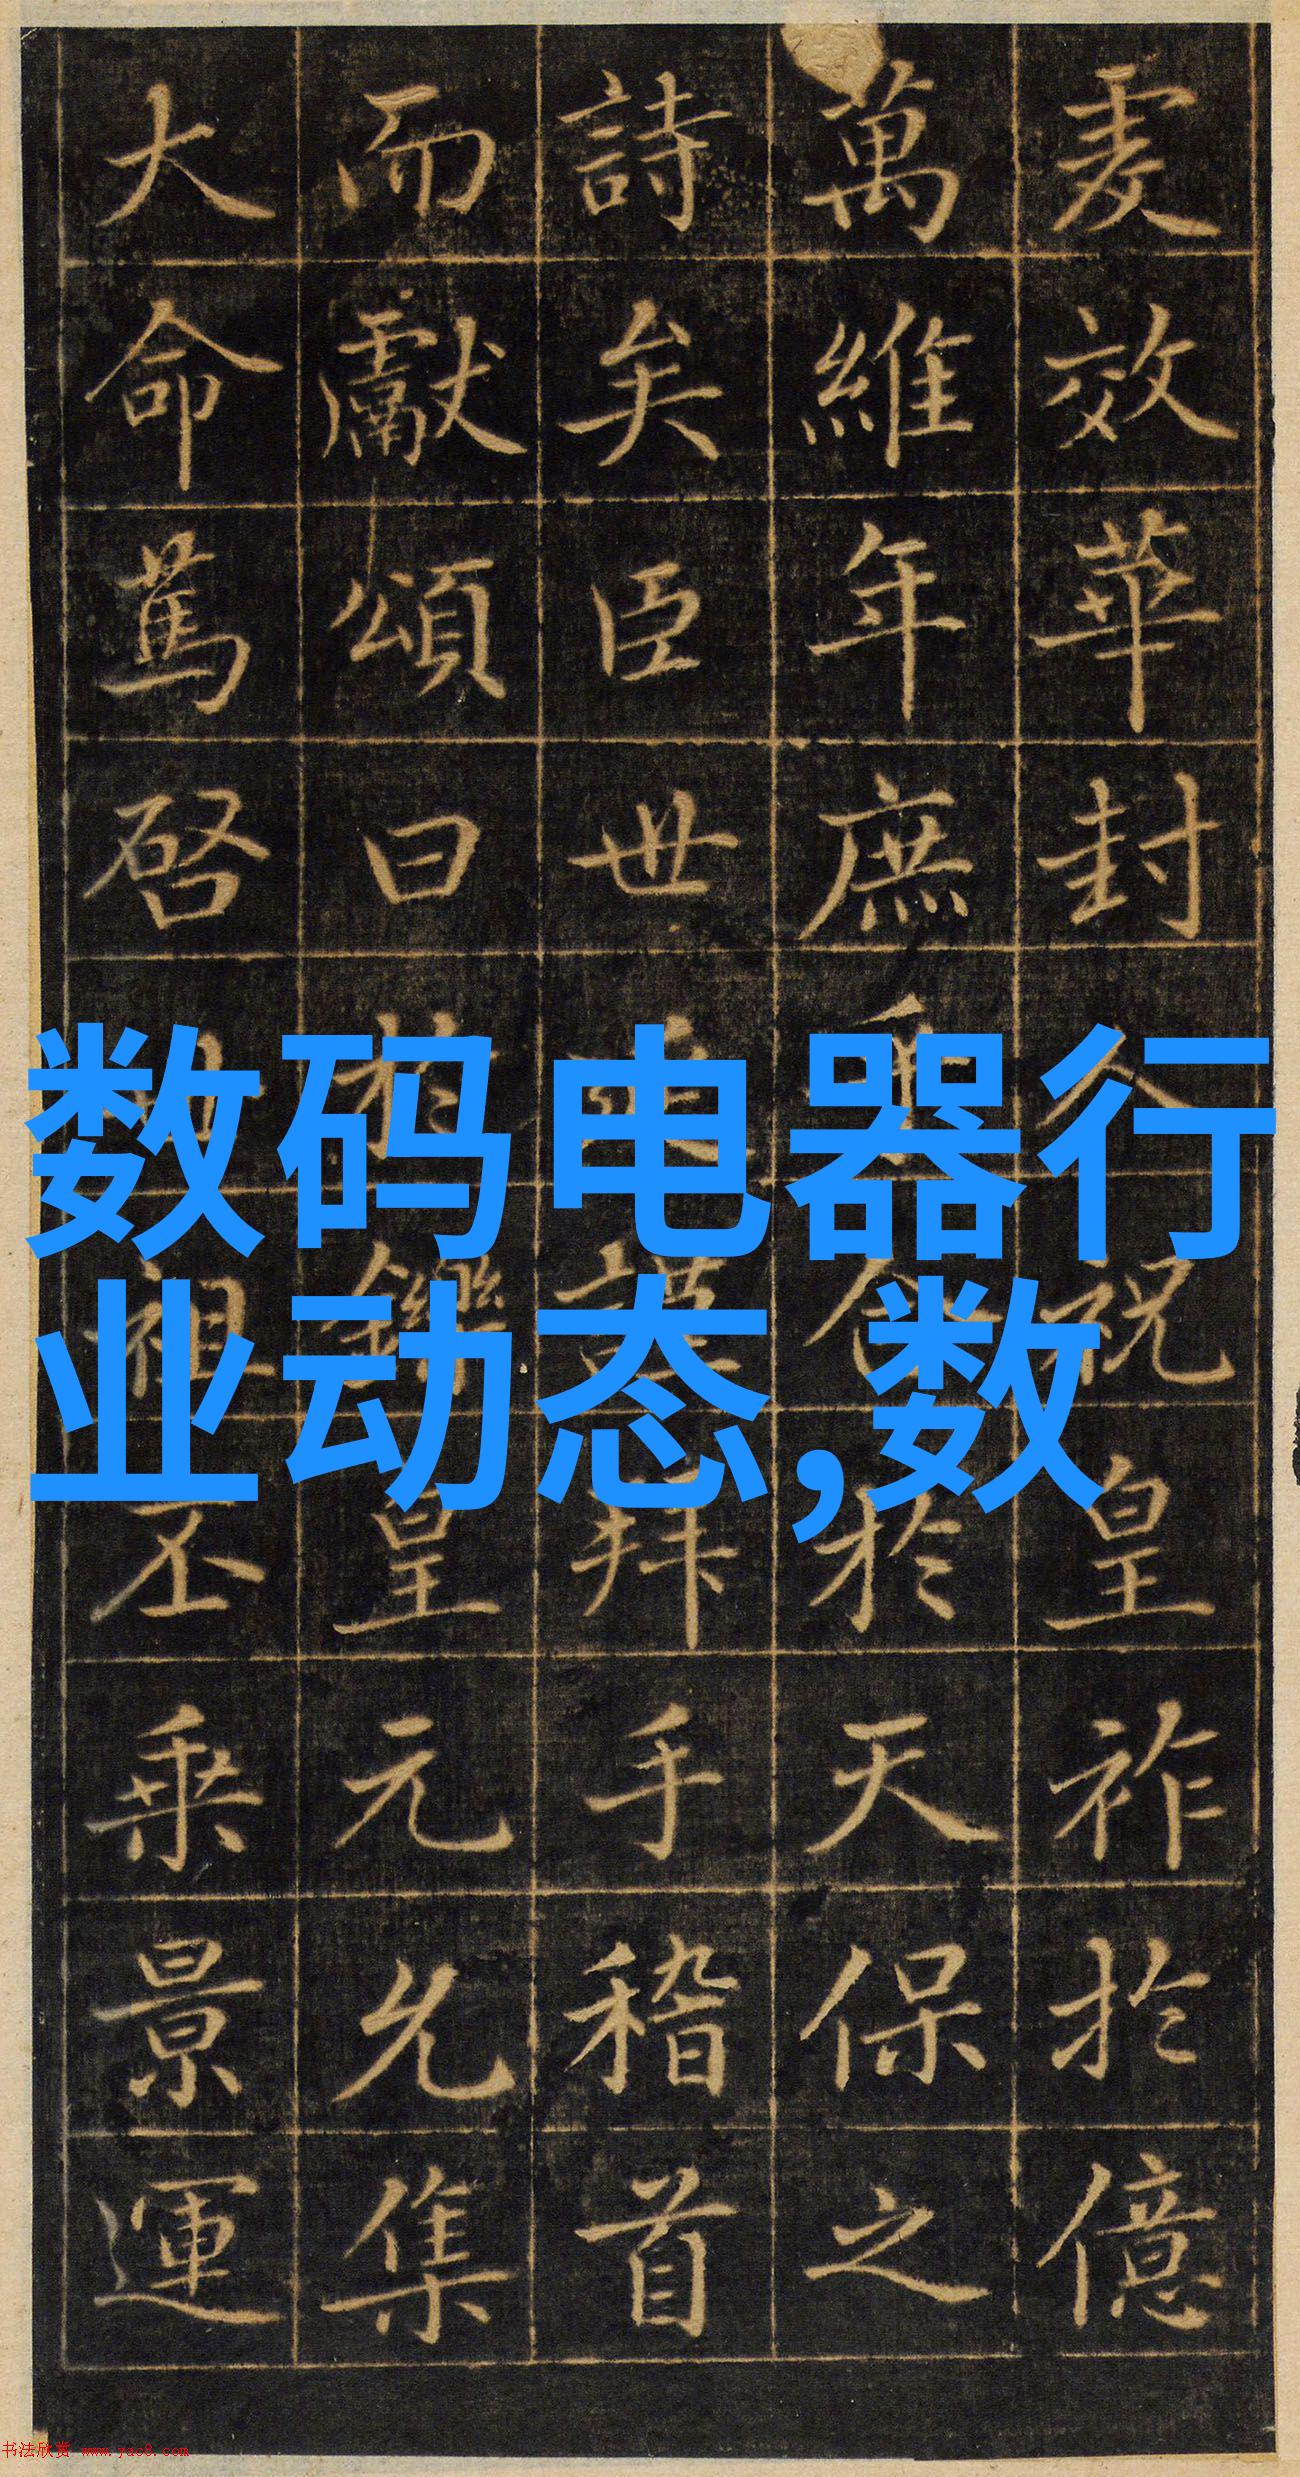 爰效華封人祝皇祚於億
萬維年庶乎合於天保之
詩矣臣世謹拜手稽首
而獻頌曰於鑠皇元允集
大命篤啓祖丕乘景運
数码电器行
业动态,数
书法欣赏 www.yac8.com